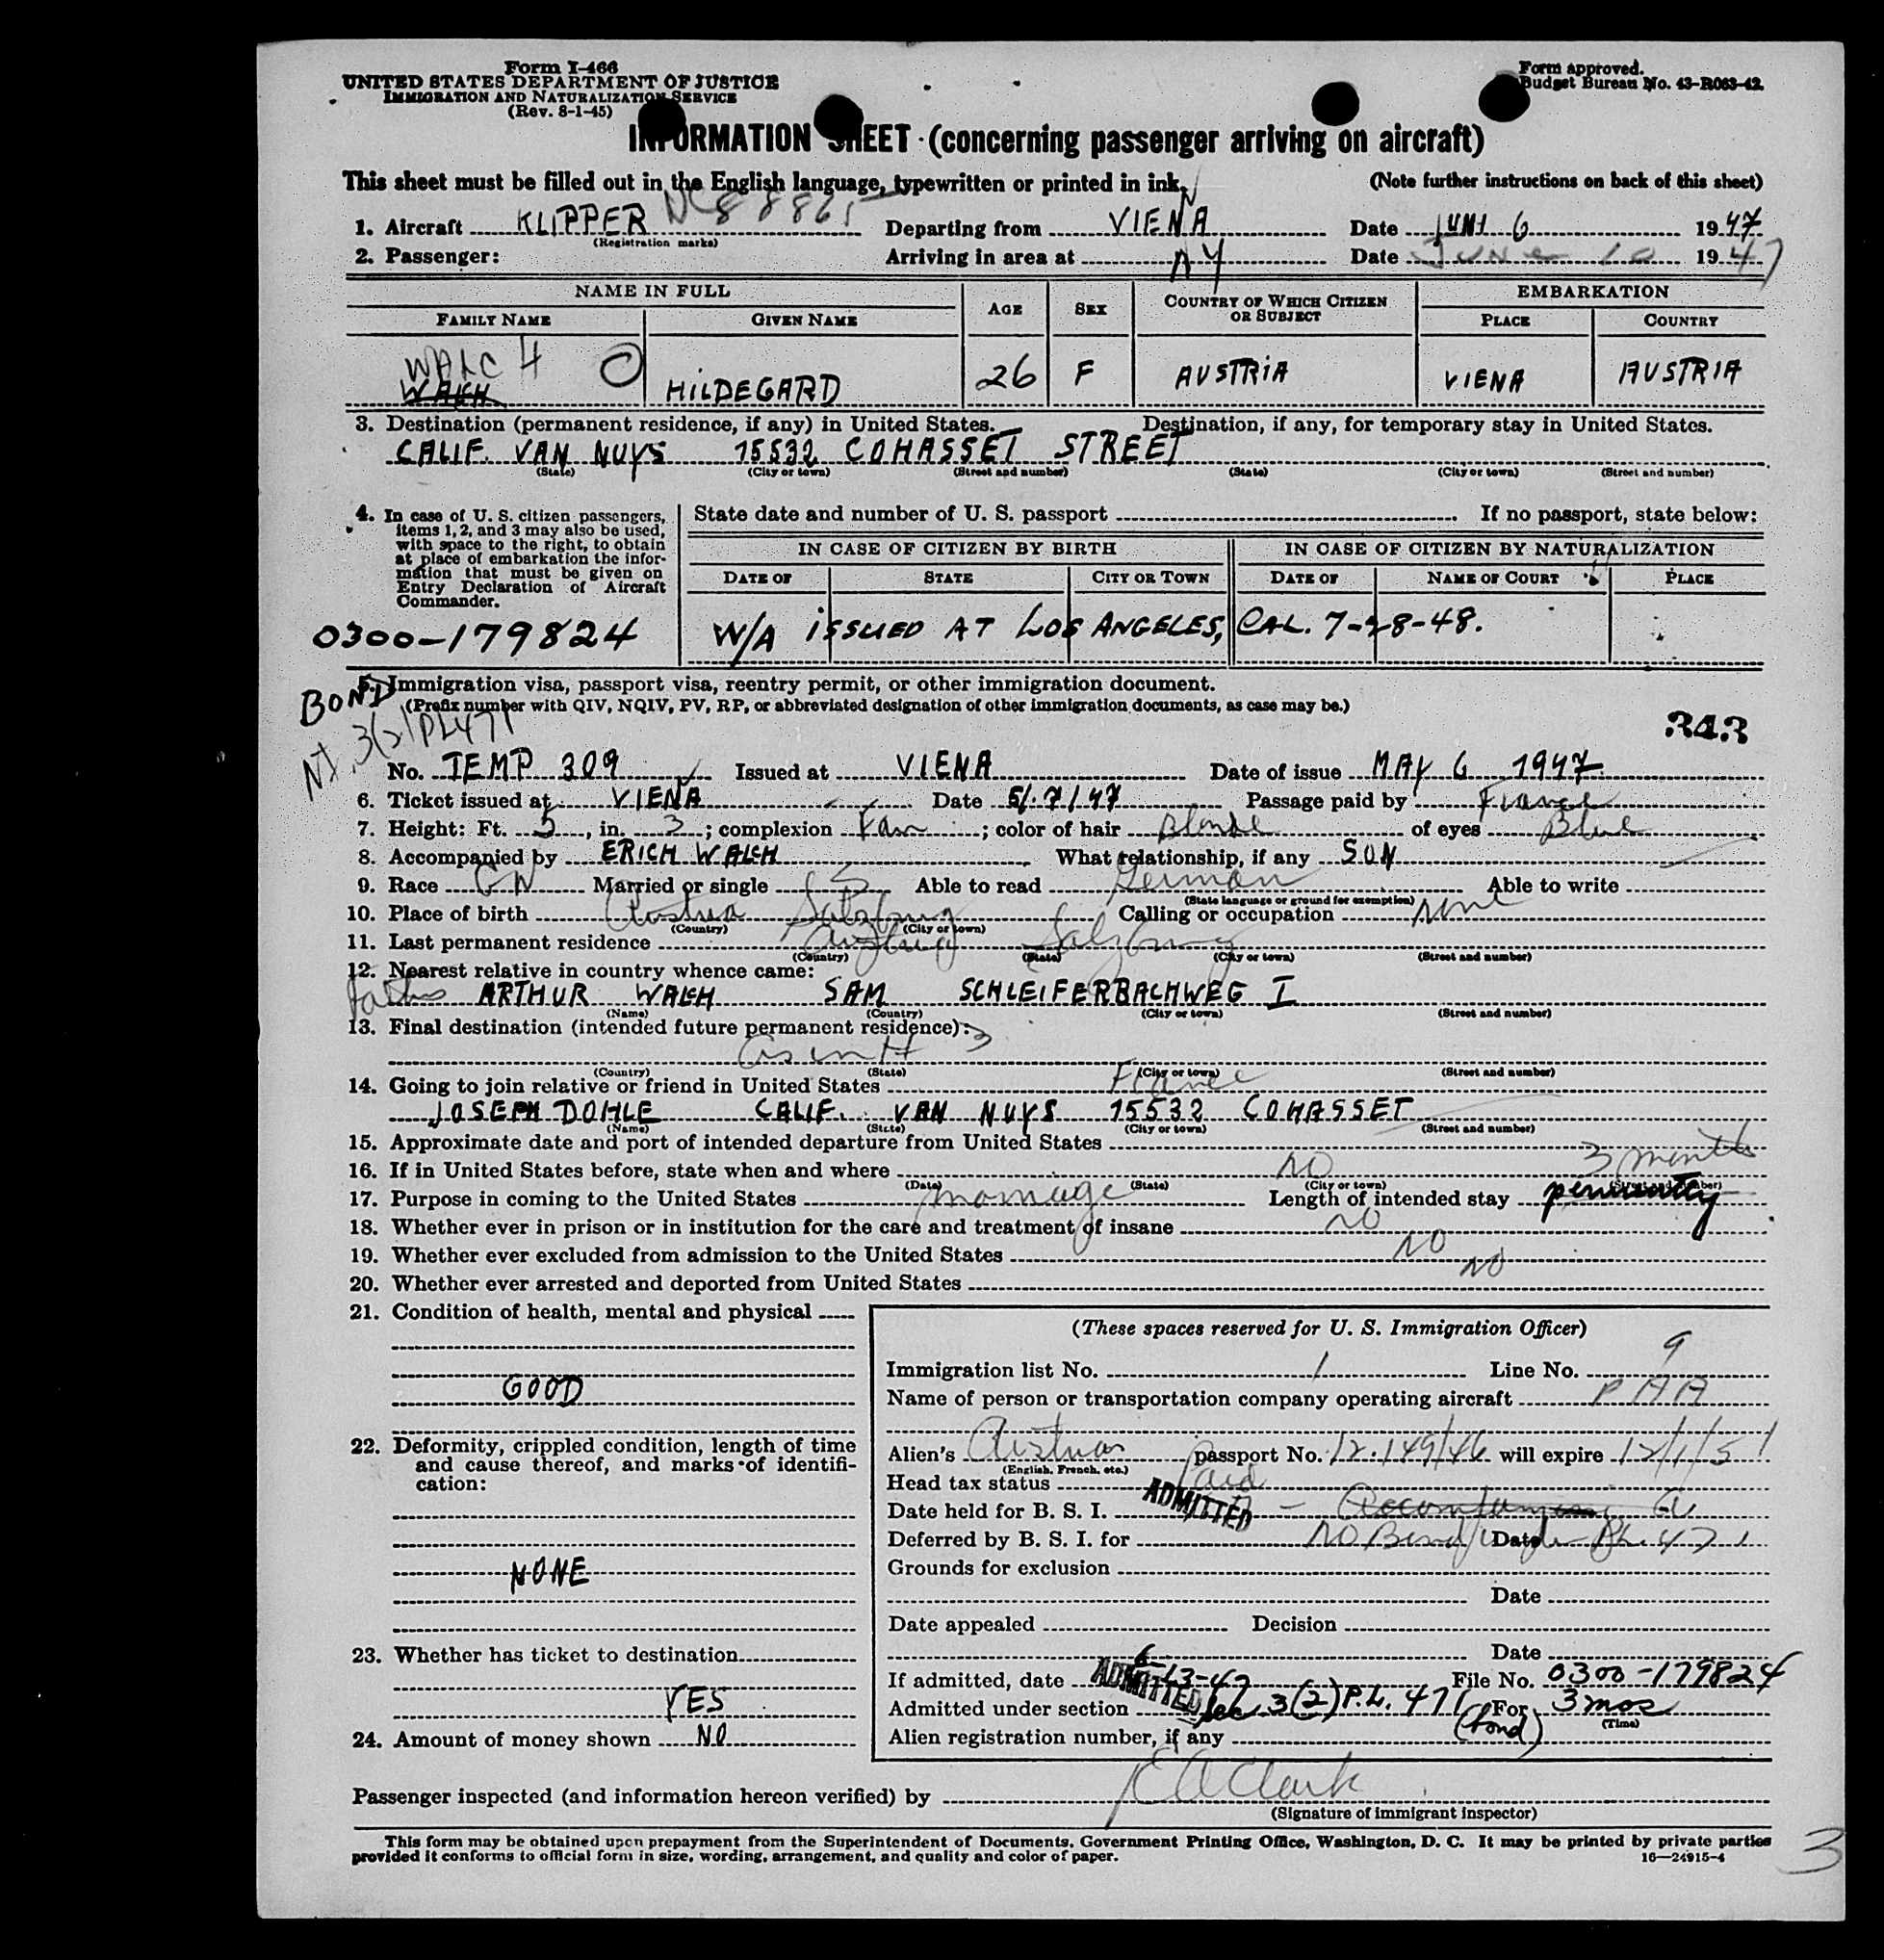 Form I-466
UNITED STATES DEPARTMENT OF JUSTICE
IMMIGRATION AND NATURALIZATION SERVICE
(Rev. 8-1-45)
Form approved.
Budget Bureau No. 43-R063-42.
INFORMATION SHEET (concerning passenger arriving on aircraft)
This sheet must be filled out in the English language, typewritten or printed in ink. (Note further instructions on back of this sheet)
1. Aircraft KLIPPER NC 88865 Departing from VIENA Date JUNI 6 1947
(Registration marks)
2. Passenger: Arriving in area at NY Date June 10 1947
NAME IN FULL AGE SEX COUNTRY OF WHICH CITIZEN OR SUBJECT EMBARKATION
FAMILY NAME GIVEN NAME PLACE COUNTRY
WALCH
WALCH HILDEGARD 26 F AUSTRIA VIENA AUSTRIA
3. Destination (permanent residence, if any) in United States. Destination, if any, for temporary stay in United States.
CALIF. VAN NUYS 15532 COHASSET STREET
(State) (City or town) (Street and number) (State) (City or town) (Street and number)
4. In case of U. S. citizen passengers, items 1, 2, and 3 may also be used, with space to the right, to obtain at place of embarkation the information that must be given on Entry Declaration of Aircraft Commander.
State date and number of U. S. passport If no passport, state below:
IN CASE OF CITIZEN BY BIRTH IN CASE OF CITIZEN BY NATURALIZATION
DATE OF STATE CITY OR TOWN DATE OF NAME OF COURT PLACE
0300-179824 W/A ISSUED AT LOS ANGELES, CAL. 7-28-48.
BOND
NI. 3(2) PL 471
5. Immigration visa, passport visa, reentry permit, or other immigration document.
(Prefix number with QIV, NQIV, PV, RP, or abbreviated designation of other immigration documents, as case may be.)
343
No. TEMP 309 Issued at VIENA Date of issue MAY 6 1947
6. Ticket issued at VIENA Date 5/.7/47 Passage paid by Fiance
7. Height: Ft. 5, in. 3; complexion Fair; color of hair Blonde of eyes Blue
8. Accompanied by ERICH WALCH What relationship, if any SON
9. Race GN Married or single S Able to read German Able to write
(State language or ground for exemption)
10. Place of birth Austria Salzburg Calling or occupation None
(Country) (City or town)
11. Last permanent residence Austria Salzburg
(Country) (State) (City or town) (Street and number)
12. Nearest relative in country whence came:
Father ARTHUR WALCH SAM SCHLEIFERBACHWEG I
(Name) (Country) (City or town) (Street and number)
13. Final destination (intended future permanent residence):
as in # 3
(Country) (State) (City or town) (Street and number)
14. Going to join relative or friend in United States Fiance
JOSEPH DOHLE CALIF. VAN NUYS 15532 COHASSET
(Name) (State) (City or town) (Street and number)
15. Approximate date and port of intended departure from United States
16. If in United States before, state when and where NO 3 months
(Date) (State) (City or town) (Street and number)
17. Purpose in coming to the United States marriage Length of intended stay permently
18. Whether ever in prison or in institution for the care and treatment of insane NO
19. Whether ever excluded from admission to the United States NO
20. Whether ever arrested and deported from United States NO
21. Condition of health, mental and physical
GOOD
22. Deformity, crippled condition, length of time and cause thereof, and marks of identification:
NONE
23. Whether has ticket to destination
YES
24. Amount of money shown NO
(These spaces reserved for U. S. Immigration Officer)
Immigration list No. 1 Line No. 9
Name of person or transportation company operating aircraft PAA
Alien's Austrian passport No. 12.149/46 will expire 12/1/51
(English, French, etc.)
Head tax status Paid
Date held for B. S. I. ADMITTED - Accompanying
Deferred by B. S. I. for NO Bond under PL. 471 Date
Grounds for exclusion
Date
Date appealed Decision
Date
If admitted, date 6-13-47 File No. 0300-179824
ADMITTED
Admitted under section Sec 3(2) P.L. 471 (bond) For 3 mos
(Time)
Alien registration number, if any
Passenger inspected (and information hereon verified) by E A Clark
(Signature of immigrant inspector)
This form may be obtained upon prepayment from the Superintendent of Documents, Government Printing Office, Washington, D. C. It may be printed by private parties
provided it conforms to official form in size, wording, arrangement, and quality and color of paper.
16—24915-4
3